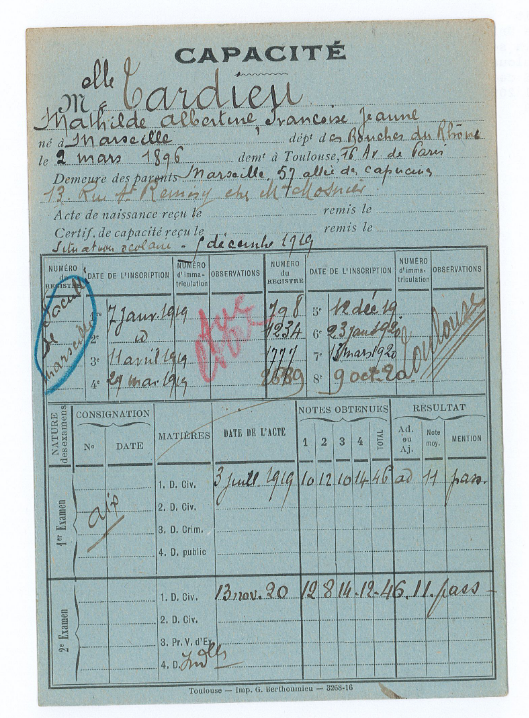 CAPACITÉ
Melle Tardieu
Mathilde Albertine, Françoise Jeanne
né à Marseille dépt des Bouches du Rhône
le 2 mars 1896 demt à Toulouse, 16 Av. de Paris
Demeure des parents Marseille, 57 allée des capucines
13 Rue St Remesy chez
Acte de naissance reçu le remis le
Certif. de capacité reçu le remis le
Situation scolaire - décembre 1919
NUMÉRO du REGISTRE DATE DE L'INSCRIPTION NUMÉRO d'imma-triculation OBSERVATIONS NUMÉRO du REGISTRE DATE DE L'INSCRIPTION NUMÉRO d'imma-triculation OBSERVATIONS
1re 7 Janv. 1919 798 5e 12 déc. 19
2e id 1234 6e 23 janv 1920
3e 11 avril 1919 1777 7e mars 1920
4e 29 mai 1919 8e 9 oct. 20
Faculté de Marseille
Aix
Toulouse
NATURE des examens CONSIGNATION MATIÈRES DATE DE L'ACTE NOTES OBTENUES RÉSULTAT
No DATE 1 2 3 4 TOTAL Ad. ou Aj. Note moy. MENTION
1er Examen
aix
1. D. Civ. 3 juill. 1919 10 12 10 14 46 ad 11 pass.
2. D. Civ.
3. D. Crim.
4. D. public
2e Examen
1. D. Civ. 13 nov. 20 12 8 14 12 46. 11. pass
2. D. Civ.
3. Pr. V. d'Ex.
4. D. Indlle
Toulouse — Imp. G. Berthoumieu — 3268-16